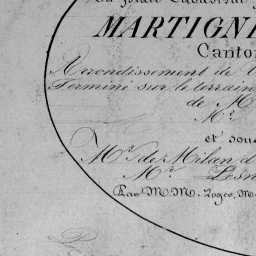 du plan Cadastral
MARTIGNE
Canton
Arrondissement de
Terminé sur le terrain
de M
Mr.
et sous
Mr. de Milan d
Mr. Lesn
Par M.M. Loger, M.